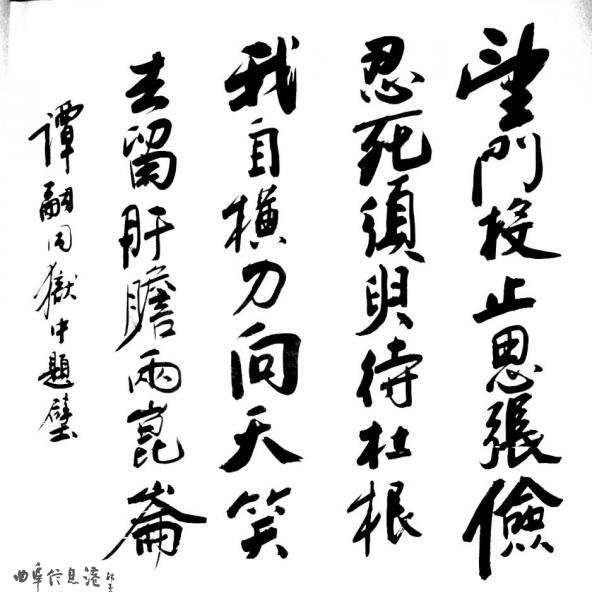 望門投止思張儉
忍死須臾待杜根
我自橫刀向天笑
去留肝膽兩崑崙
譚嗣同獄中題壁
曲阜信息港